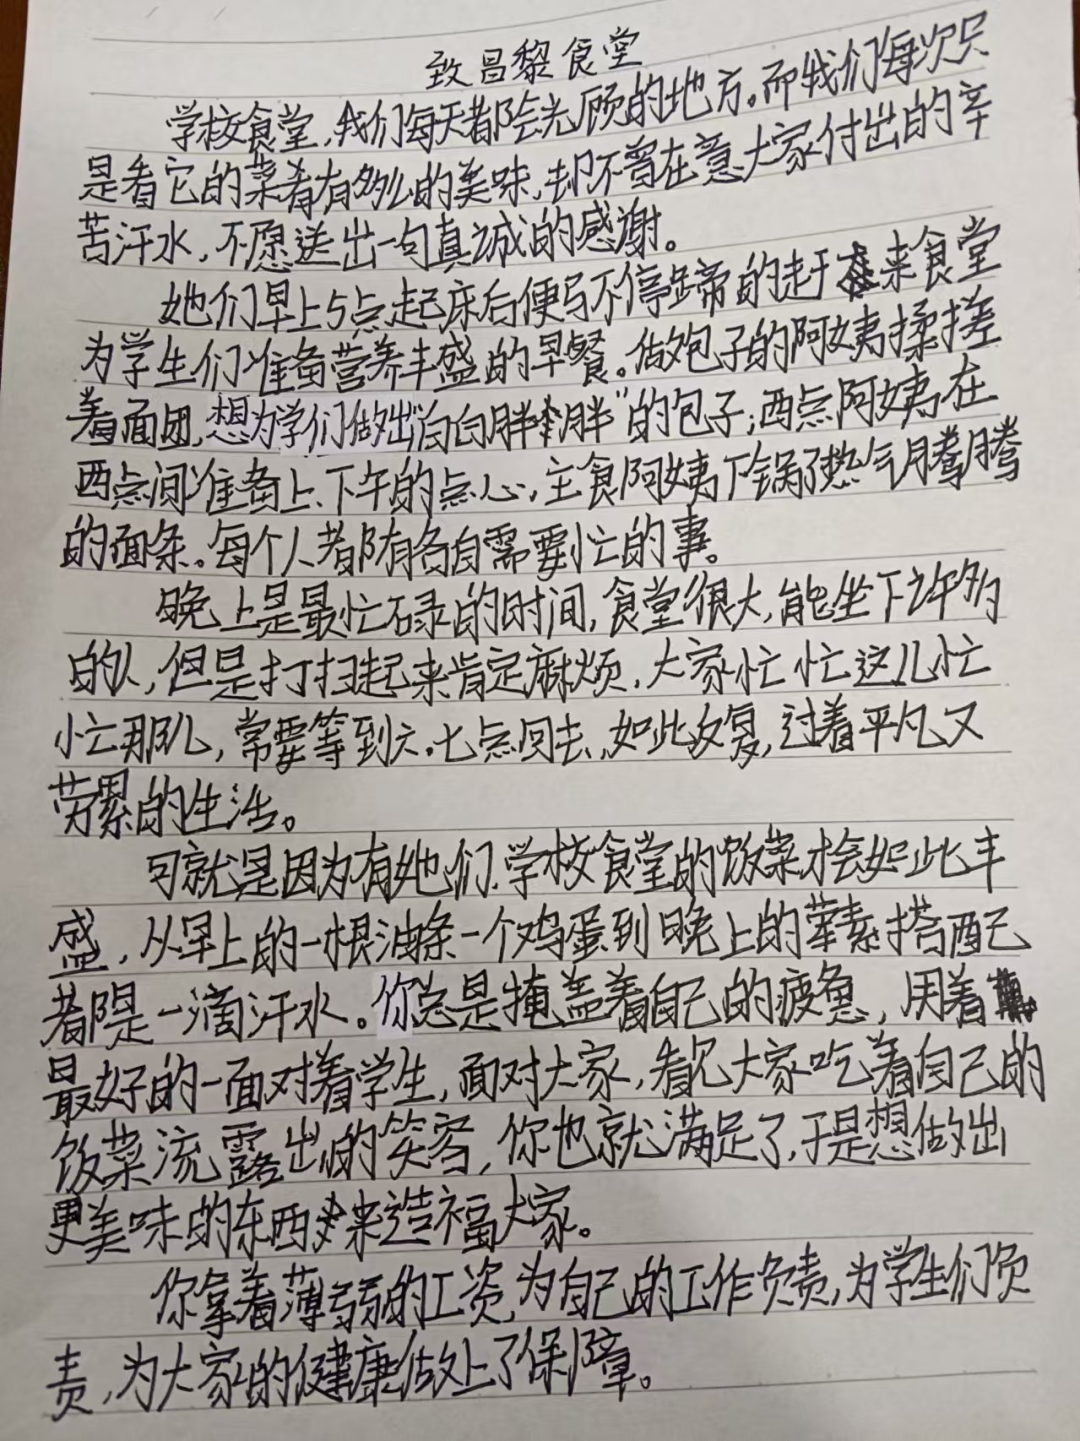 致昌黎食堂
学校食堂，我们每天都会光顾的地方。而我们每次只
是看它的菜肴有多么的美味，却不曾在意大家付出的辛
苦汗水，不愿送出一句真诚的感谢。
她们早上5点起床后便马不停蹄的赶来食堂
为学生们准备营养丰盛的早餐。做包子的阿姨揉搓
着面团，想为学们做出“白白胖胖”的包子；西点阿姨在
西点间准备上、下午的点心，主食阿姨下锅了热气腾腾
的面条。每个人都有各自需要忙的事。
晚上是最忙碌的时间，食堂很大，能坐下许多
的人，但是打扫起来肯定麻烦，大家忙忙这儿忙
忙那儿，常要等到六．七点回去，如此反复，过着平凡又
劳累的生活。
可就是因为有她们，学校食堂的饭菜才会如此丰
盛，从早上的一根油条一个鸡蛋到晚上的荤素搭配
都是一滴汗水。你总是掩盖着自己的疲惫，用着
最好的一面对着学生，面对大家，看见大家吃着自己的
饭菜流露出的笑容，你也就满足了，于是想做出
更美味的东西来造福大家。
你拿着薄弱的工资，为自己的工作负责，为学生们负
责，为大家的健康做上了保障。